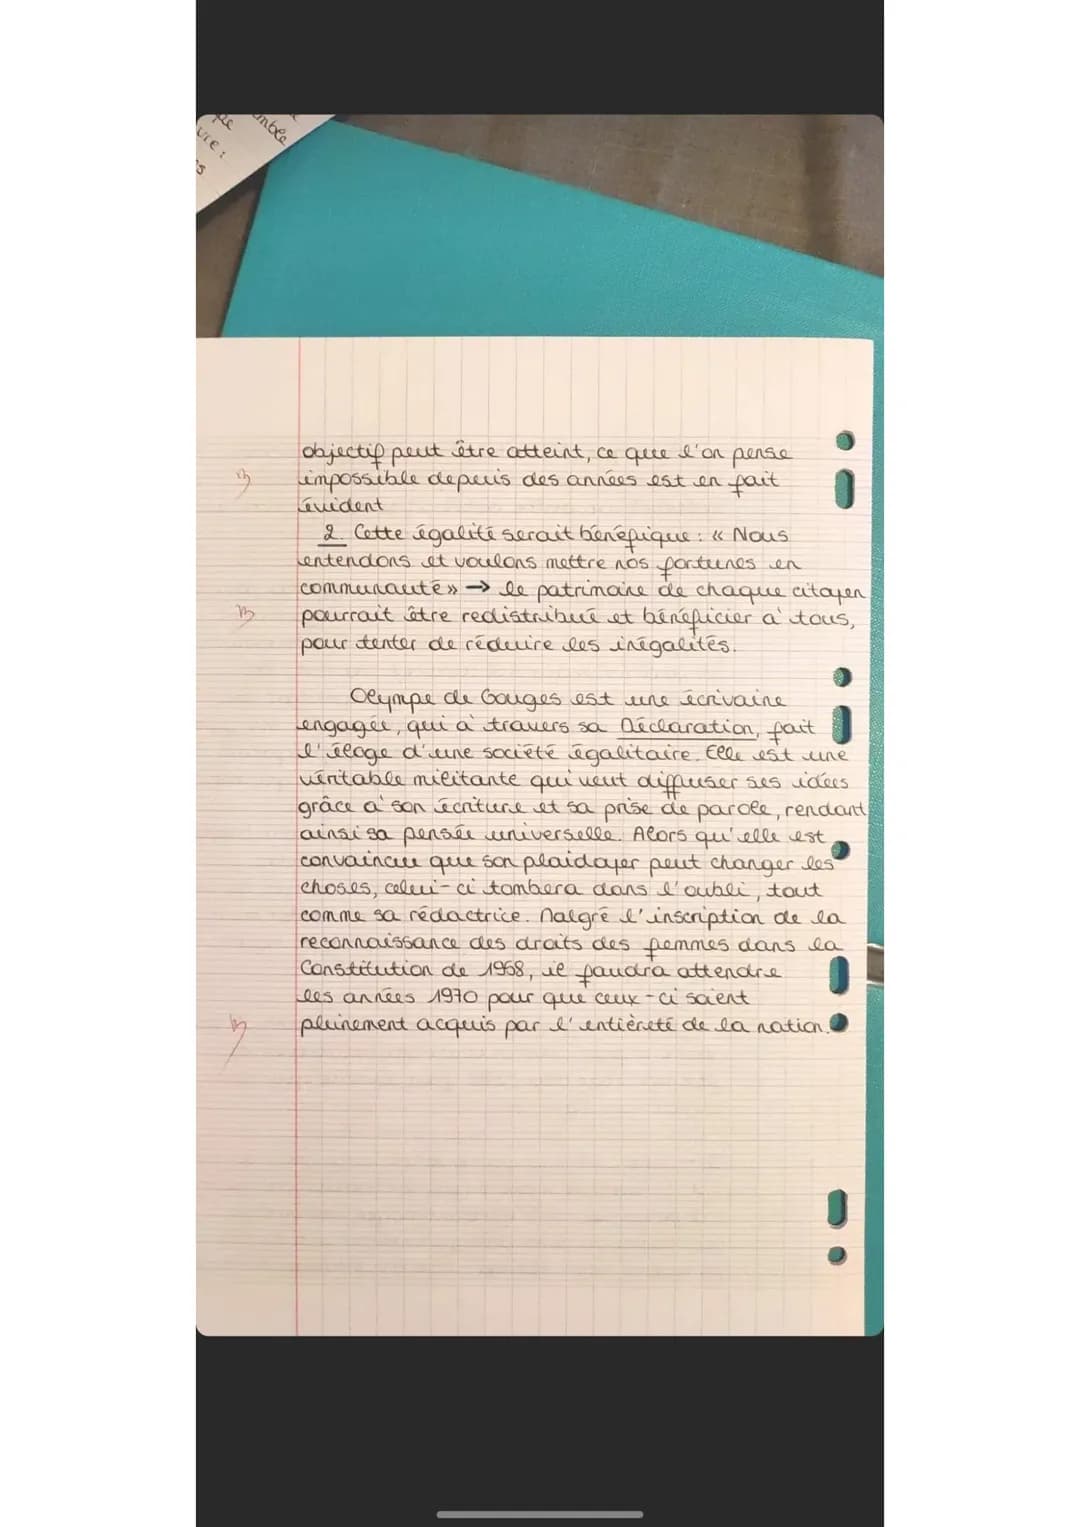 vre :
mblée
objectif peut être atteint, ce que l'on pense
impossible depuis des années est en fait
évident
2. Cette égalité serait bénéfique : « Nous
entendons et voulons mettre nos fortunes en
communauté » → le patrimoine de chaque citoyen
pourrait être redistribué et bénéficier à tous,
pour tenter de réduire les inégalités.
Olympe de Gouges est une écrivaine
engagée, qui à travers sa Déclaration, fait
l'éloge d'une société égalitaire. Elle est une
véritable militante qui veut diffuser ses idées
grâce à son écriture et sa prise de parole, rendant
ainsi sa pensée universelle. Alors qu'elle est
convaincue que son plaidoyer peut changer les
choses, celui-ci tombera dans l'oubli, tout
comme sa rédactrice. Malgré l'inscription de la
reconnaissance des droits des femmes dans la
Constitution de 1958, il faudra attendre
les années 1970 pour que ceux-ci soient
pleinement acquis par l'entièreté de la nation.